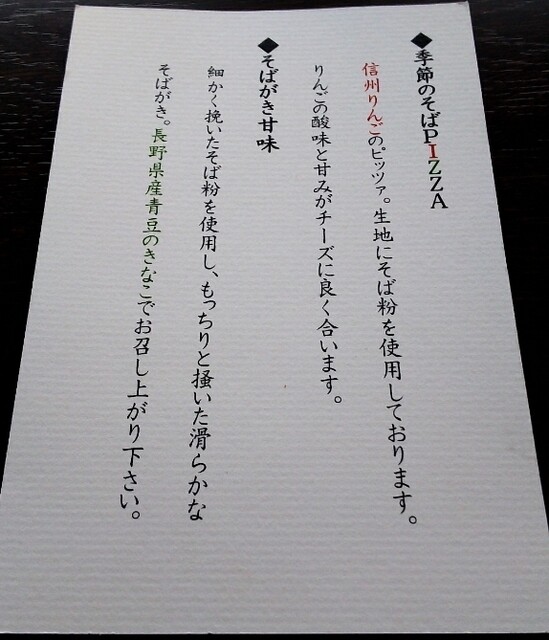 ◆季節のそばPIZZA
信州りんごのピッツァ。生地にそば粉を使用しております。
りんごの酸味と甘みがチーズに良く合います。
◆そばがき甘味
細かく挽いたそば粉を使用し、もっちりと掻いた滑らかな
そばがき。長野県産青豆のきなこでお召し上がり下さい。